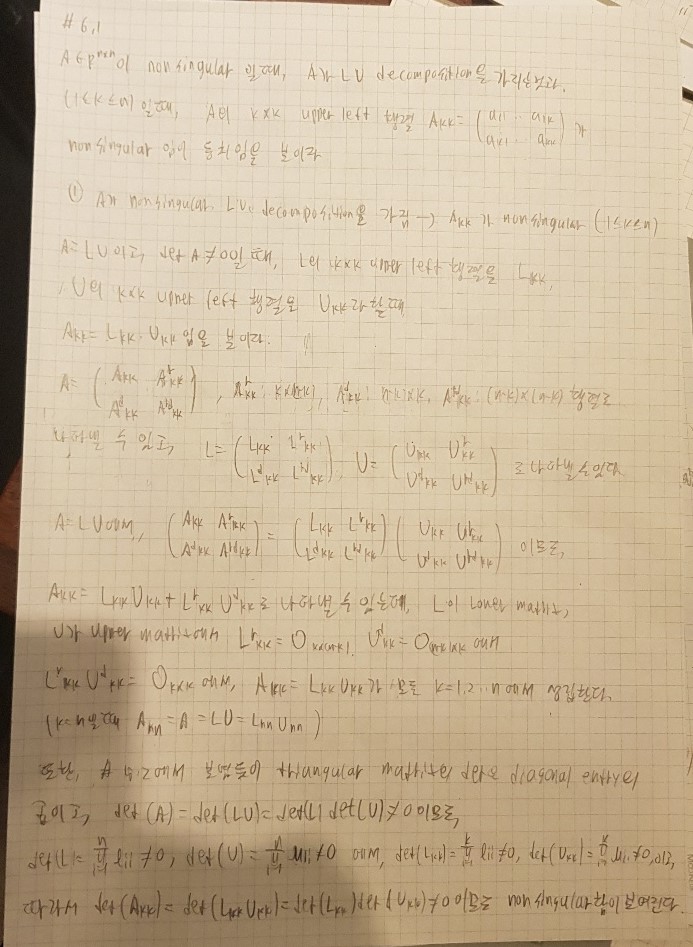 #6.1
A∈R^{n×n}이 nonsingular 일때, A가 LU decomposition을 가리는것과.
(1≤k≤n) 일때, A의 k×k upper left 행렬 A_{kk} = (a_{11} ·· a_{1k} / a_{k1} ·· a_{kk}) 가
nonsingular 임이 동치임을 보이라
① A가 nonsingular. LU decomposition을 가짐 → A_{kk} 가 nonsingular (1≤k≤n)
A=LU이고, det A ≠ 0일 때, L의 k×k upper left 행렬을 L_{kk},
U의 k×k upper left 행렬을 U_{kk}라 할때
A_{kk} = L_{kk}·U_{kk} 임을 보이라.
A = (A_{kk} A^r_{kk} / A^d_{kk} A^{rd}_{kk}), A^r_{kk} : k×(n-k), A^d_{kk} : (n-k)×k, A^{rd}_{kk} : (n-k)×(n-k) 행렬로
나타낼 수 있고, L = (L_{kk} L^r_{kk} / L^d_{kk} L^{rd}_{kk}), U = (U_{kk} U^r_{kk} / U^d_{kk} U^{rd}_{kk}) 로 나타낼 수 있다
A=LU에서, (A_{kk} A^r_{kk} / A^d_{kk} A^{rd}_{kk}) = (L_{kk} L^r_{kk} / L^d_{kk} L^{rd}_{kk}) (U_{kk} U^r_{kk} / U^d_{kk} U^{rd}_{kk}) 이므로,
A_{kk} = L_{kk}U_{kk} + L^r_{kk} U^d_{kk}로 나타낼 수 있는데, L이 lower matrix,
U가 upper matrix에서 L^r_{kk} = O_{k×(n-k)}, U^d_{kk} = O_{(n-k)×k} 에서
L^r_{kk} U^d_{kk} = O_{k×k} 에서, A_{kk} = L_{kk}U_{kk}가 모든 k=1,2··n에서 성립한다.
(k=n일때 A_{nn} = A = LU = L_{nn} U_{nn})
또한, 에서 triangular matrix diagonal entry
이고, det(A) = det(LU) = det(L) det(U) ≠ 0 이므로,
det(L) = ∏_{i=1}^{n} l_{ii} ≠ 0, det(U) = ∏_{i=1}^{n} u_{ii} ≠ 0 에서, det(L_{kk}) = ∏_{i=1}^{k} l_{ii} ≠ 0, det(U_{kk}) = ∏_{i=1}^{k} u_{ii} ≠ 0 이고,
따라서 det(A_{kk}) = det(L_{kk}U_{kk}) = det(L_{kk}) det(U_{kk}) ≠ 0 이므로 nonsingular 함이 보여진다.